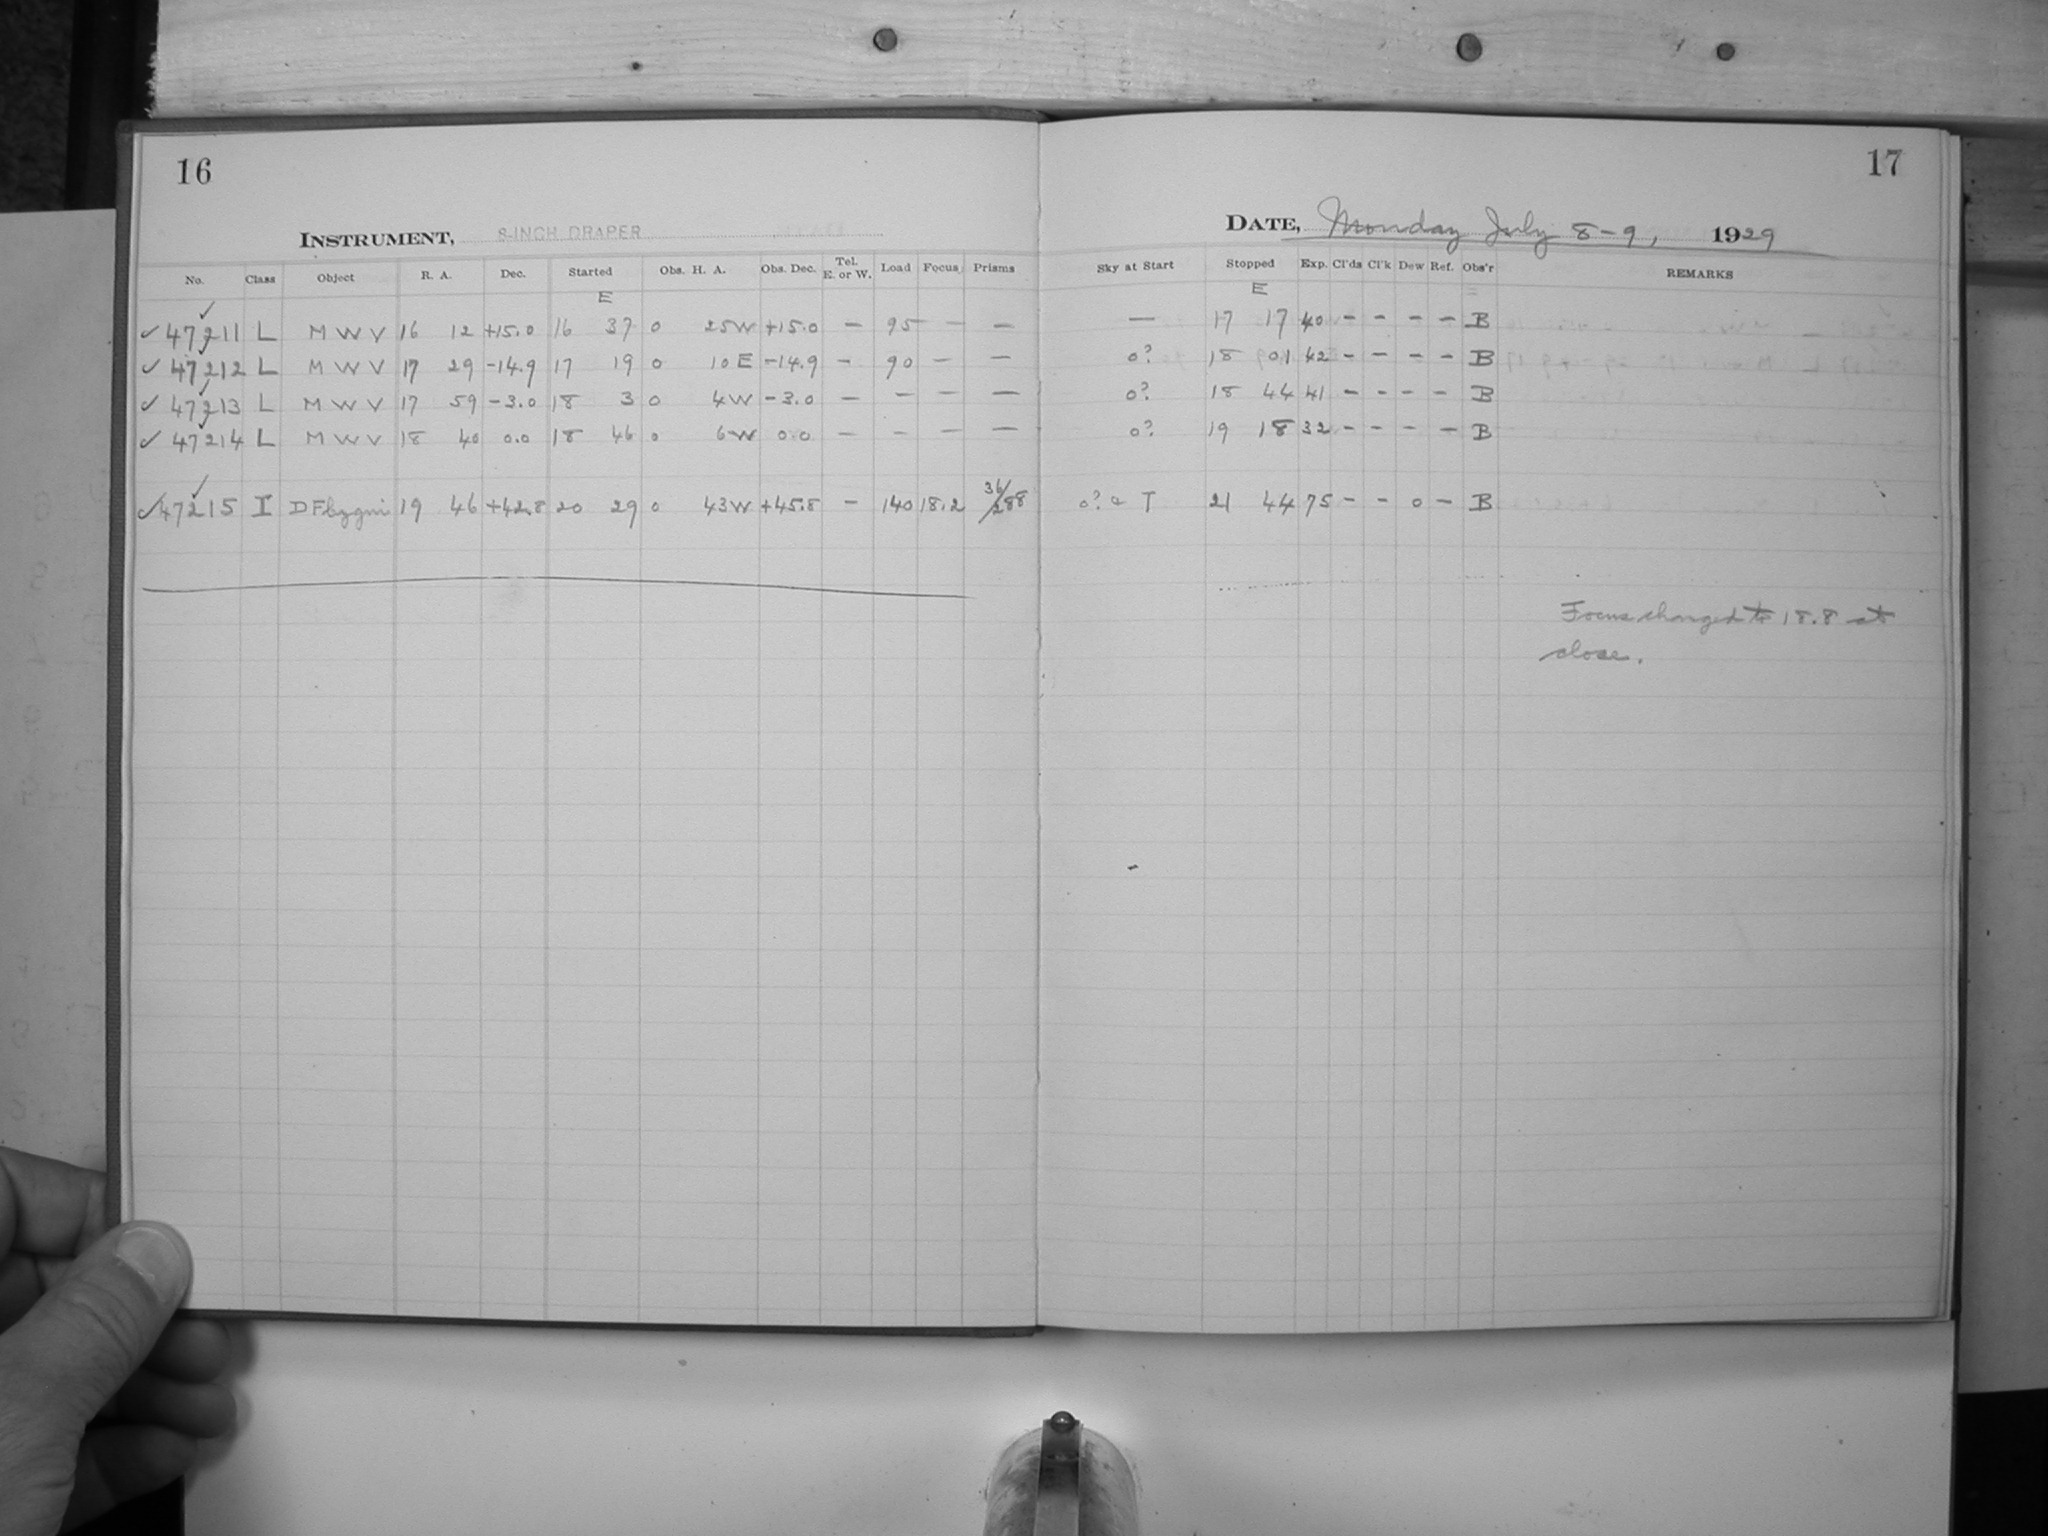 16
17
INSTRUMENT, 8-INCH DRAPER
DATE, Monday July 8-9, 1929
No. Class Object R. A. Dec. Started Obs. H. A. Obs. Dec. Tel. E. or W. Load Focus Prisms Sky at Start Stopped Exp. Cl'ds Cl'k Dew Ref. Obs'r REMARKS
E E
✓ 47211 L M W V 16 12 +15.0 16 37 0 25W +15.0 — 95 — — — 17 17 40 — — — — B
✓ 47212 L M W V 17 29 -14.9 17 19 0 10 E -14.9 — 90 — — 0? 18 01 42 — — — — B
✓ 47213 L M W V 17 59 -3.0 18 3 0 4W -3.0 — — — — 0? 18 44 41 — — — — B
✓ 47214 L M W V 18 40 0.0 18 46 0 6W 0.0 — — — — 0? 19 18 32 — — — — B
✓ 47215 I DF Cygni 19 46 +42.8 20 29 0 43W +45.8 — 140 18.2 36/288 0? & T 21 44 75 — — 0 — B
Focus changed to 18.8 at
close.